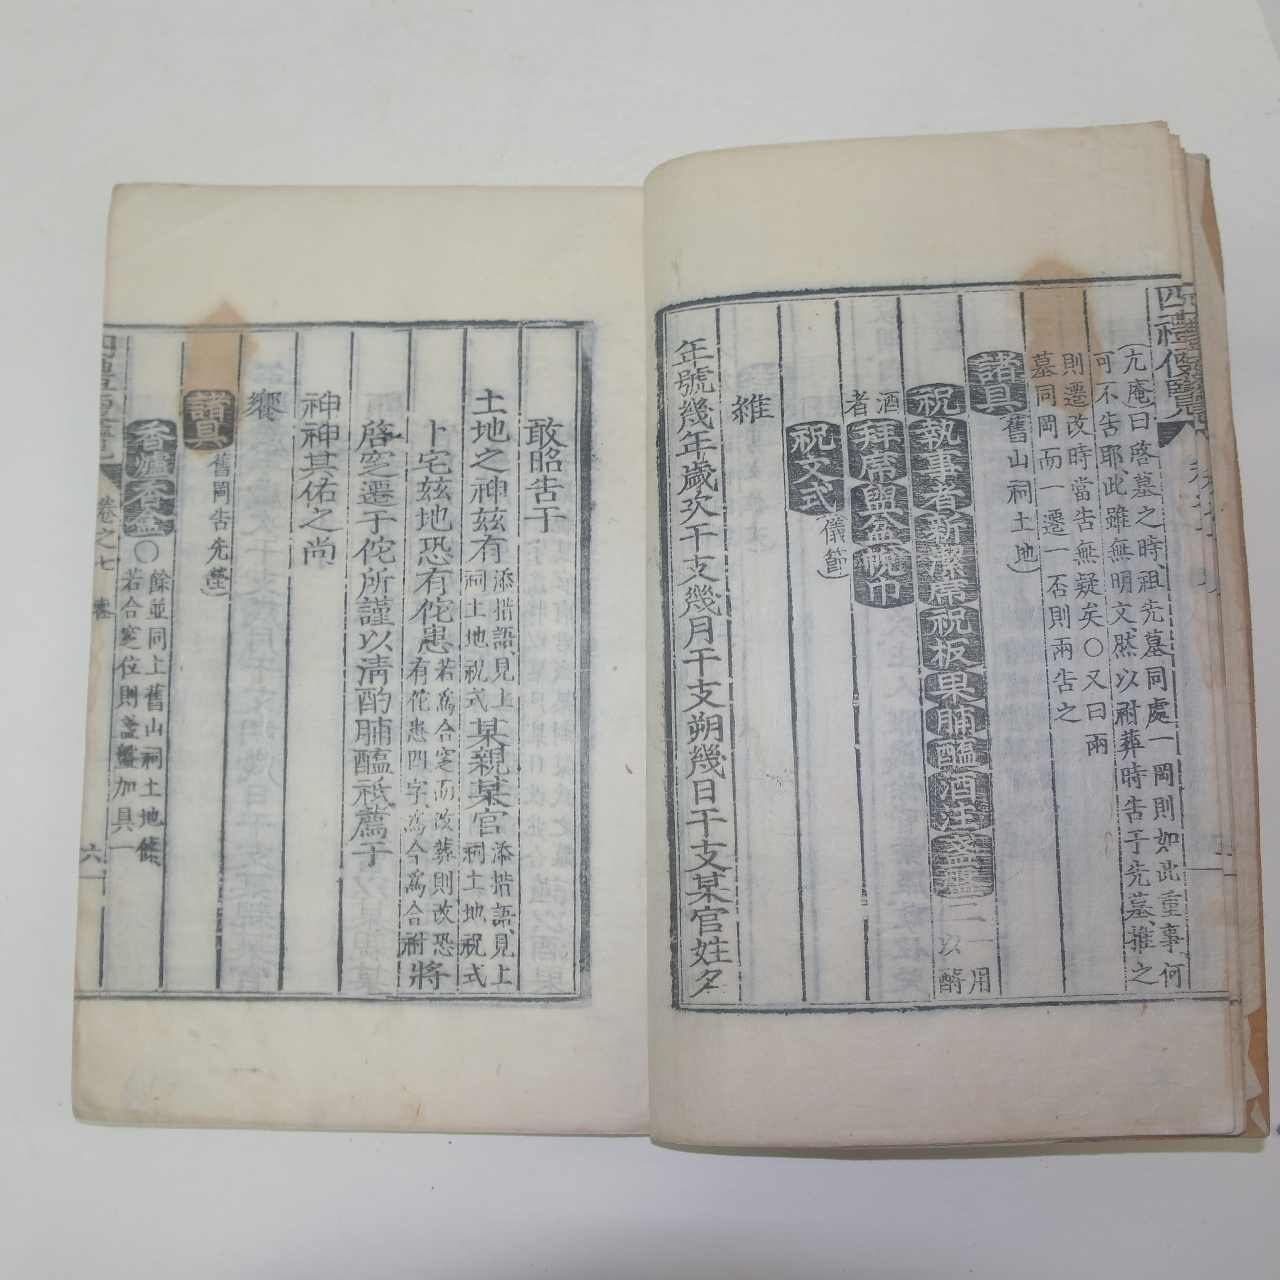 四禮便覽
(尤庵)曰啓墓之時、祖先墓同處一岡則如此重事何
可不告耶、此雖無明文、然以祔葬時告于先墓、推之
則遷改時當告無疑矣○又曰兩
墓同岡而一遷一否則兩告之
諸具(舊山祠土地)
祝 執事者 新潔席 祝板 果 脯 醢 酒注 盞盤 二一用
以酹
酒
者 拜席 盥盆 帨巾
祝文式(儀節)
維
年號幾年歲次干支幾月干支朔幾日干支某官姓名
敢昭告于
土地之神玆有添措語、見上
祠土地祝式某親某官添措語、見上
祠土地祝式
卜宅玆地恐有佗患若爲合窆而改葬則改恐
有佗患四字、爲今爲合祔將
啓窆遷于佗所謹以淸酌脯醢祗薦于
神神其佑之尚
饗
諸具(舊岡告先塋)
香爐 香盒○餘並同上舊山祠土地條
若合窆位則盞盤加具一
卷之七 喪 六